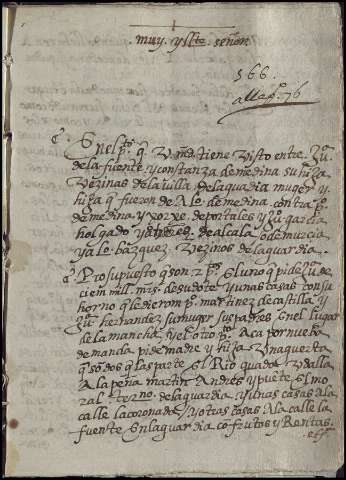 muy. yllte. señor.
566.
allapo. 76
En el pto. q. V. md. tiene visto entre Jua.
de la fuente y constanza de medina su hija
vezinas de la villa de la guardia muger y
hija q. fueron de Alo. de medina contra po.
de medina y de portales y Juo. garcia
holgado de alcala
y alo. bazquez. Vezinos de la guardia.
Prosupuesto q. son 2 ptos. El uno q. pide Jua. de
cien mill. mrs. de su dote y unas casas con su
horno q. le dieron po. martinez de castilla y
Jua. hernandez su muger sus padres en el lugar
de la mancha, y el otro pto. Aca por nueba
demanda pide madre y hija Una guerta
q. son dos q. las parte El Rio
A la peña martin Andres y puente El mo
ral termo. de la guardia y unas casas A la
calle la coronada y otras casas A la calle la
fuente En la guardia co frutos y Rentas.